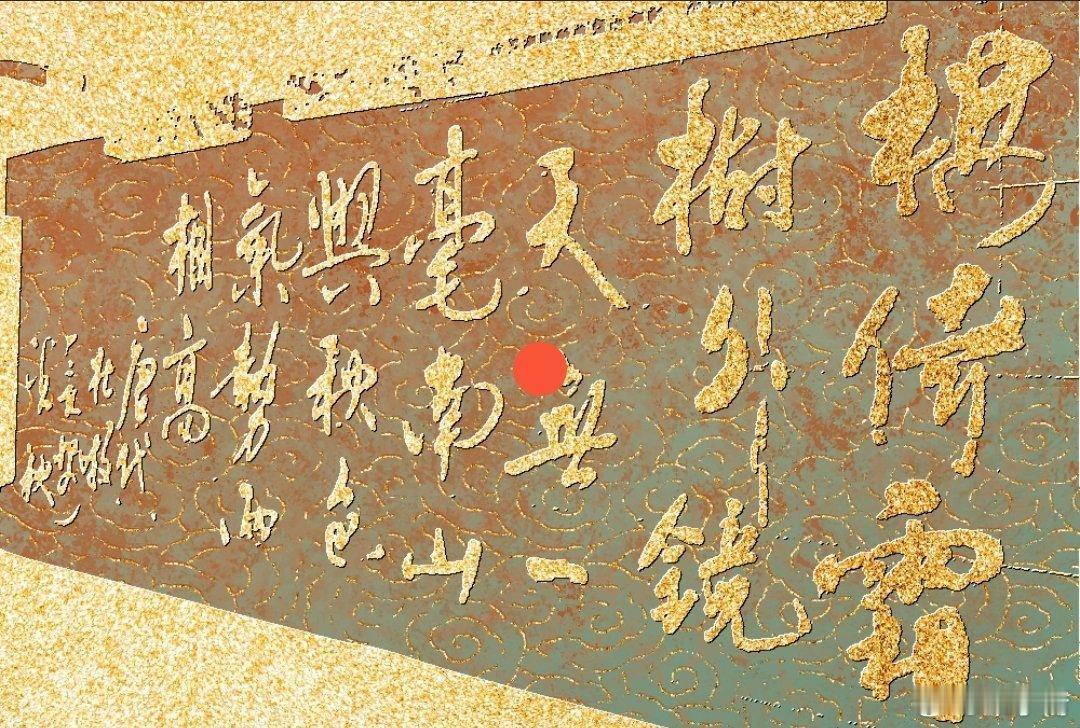 楼倚霜
樹外鏡
天無一
毫南山
與秋色
氣勢兩
相高
唐代
杜牧